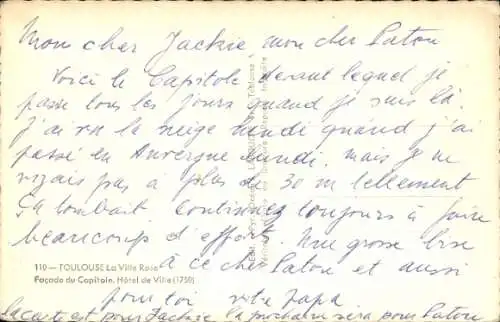 Mon cher Jackie mon cher Patou
Voici le Capitole devant lequel je
passe tous les jours quand je suis là.
J'ai vu la neige quand j'ai
passé en Auvergne lundi. mais je ne
vizais pas à plus de 30 m tellement
ça tombait. Continuez toujours à faire
beaucoup d'efforts. Une grosse bise
à ce cher Patou et aussi
110 — TOULOUSE La Ville Rose
Façade du Capitole. Hôtel de Ville (1750)
pour toi votre papa
la carte est pour Jackie la prochaine sera pour Patou